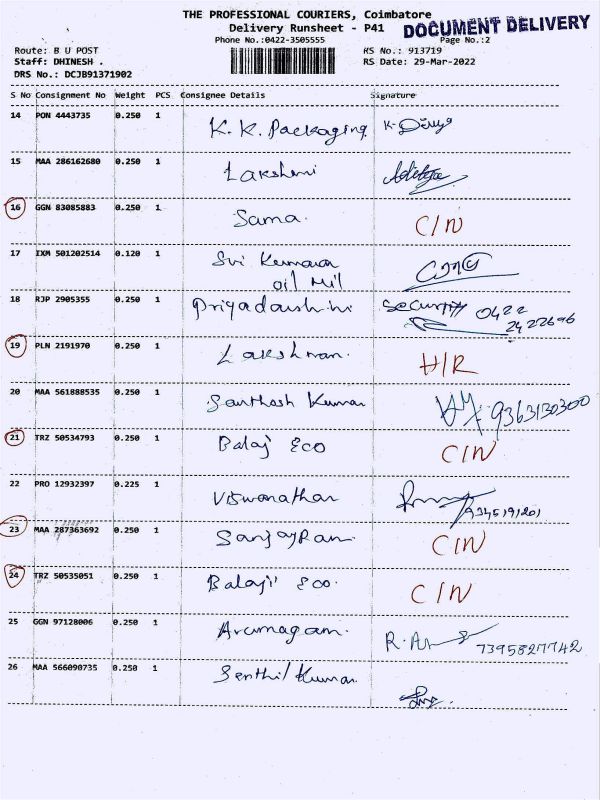 THE PROFESSIONAL COURIERS, Coimbatore
Delivery Runsheet - P41
DOCUMENT DELIVERY
Phone No.:0422-3505555
Page No.:2
Route: B U POST
RS No.: 913719
Staff: DHINESH .
RS Date: 29-Mar-2022
DRS No.: DCJB91371902
S No Consignment No Weight PCS Consignee Details Signature
14 PON 4443735 0.250 1 K. K. Packaging
15 MAA 286162680 0.250 1 Lakshmi
16 GGN 83085883 0.250 1 Sama. C/N
17 IXM 501202514 0.120 1 Sri Kumaran
oil Mil
18 RJP 2905355 0.250 1 Priyadarshini Security 0422
2422696
19 PLN 2191970 0.250 1 Lakshman. H/R
20 MAA 561888535 0.250 1 Santhosh Kumar 9363130300
21 TRZ 50534793 0.250 1 Balaj Eco C/N
22 PRO 12932397 0.225 1 Viswanathan
9345191201
23 MAA 287363692 0.250 1 SanjayRam. C/N
24 TRZ 50535051 0.250 1 Balaji Eco. C/N
25 GGN 97128006 0.250 1 Arumagam. 7395827742
26 MAA 566090735 0.250 1 Senthil Kumar